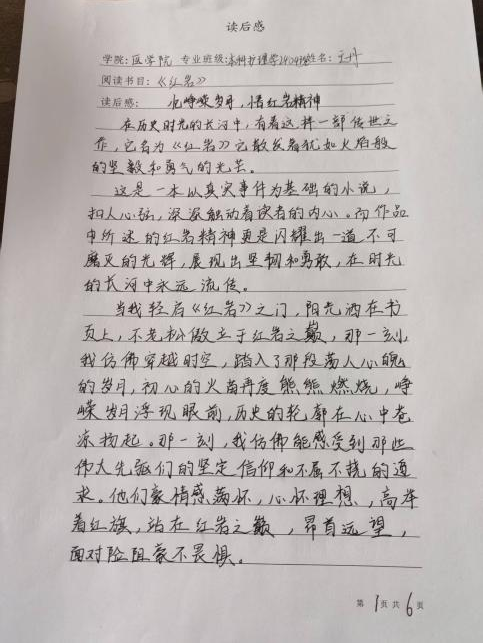 读后感
学院：医学院 专业班级：本科护理学2404班姓名：王丹
阅读书目：《红岩》
读后感： 忆峥嵘岁月，悟红岩精神
在历史时光的长河中，有着这样一部传世之
作，它名为《红岩》它散发着犹如火焰般
的坚毅和勇气的光芒。
这是一本以真实事件为基础的小说，
扣人心弦，深深触动着读者的内心。而作品
中所述的红岩精神更是闪耀出一道不可
磨灭的光辉，展现出坚韧和勇敢，在时光
的长河中永远流传。
当我轻启《红岩》之门，阳光洒在书
页上，不老松傲立于红岩之巅，那一刻，
我仿佛穿越时空，踏入了那段荡人心魄
的岁月，初心的火苗再度熊熊燃烧，峥
嵘岁月浮现眼前，历史的轮廓在心中苍
凉扬起。那一刻，我仿佛能感受到那些
伟大先驱们的坚定信仰和不屈不挠的追
求。他们豪情感满怀，心怀理想，高举
着红旗，站在红岩之巅，昂首远望，
面对险阻毫不畏惧。
第1页共6页